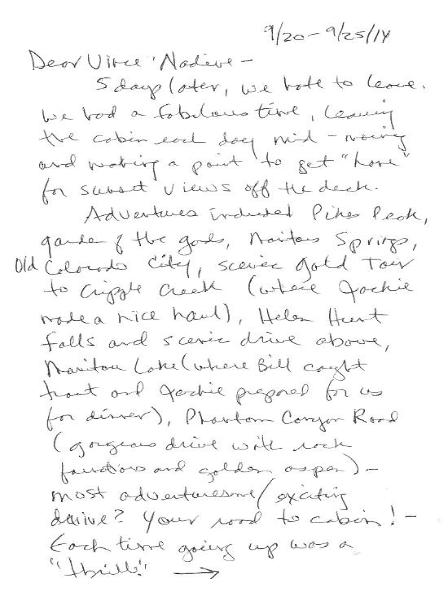 9/20 – 9/25/14
Dear Vince & Nadine –
5 days later, we hate to leave.
We had a fabulous time, leaving
the cabin each day mid-morning
and making a point to get "home"
for sunset views off the deck.
Adventures included Pikes Peak,
garden of the gods, Manitou Springs,
Old Colorado City, scenic gold Tour
to Cripple Creek (where Jackie
made a nice haul), Helen Hunt
Falls and scenic drive above,
Manitou Lake (where Bill caught
trout and Jackie prepared for us
for dinner), Phantom Canyon Road
(gorgeous drive with rock
formations and golden aspen) –
most adventuresome/exciting
drive? Your road to cabin! –
Each time going up was a
"thrill!" →